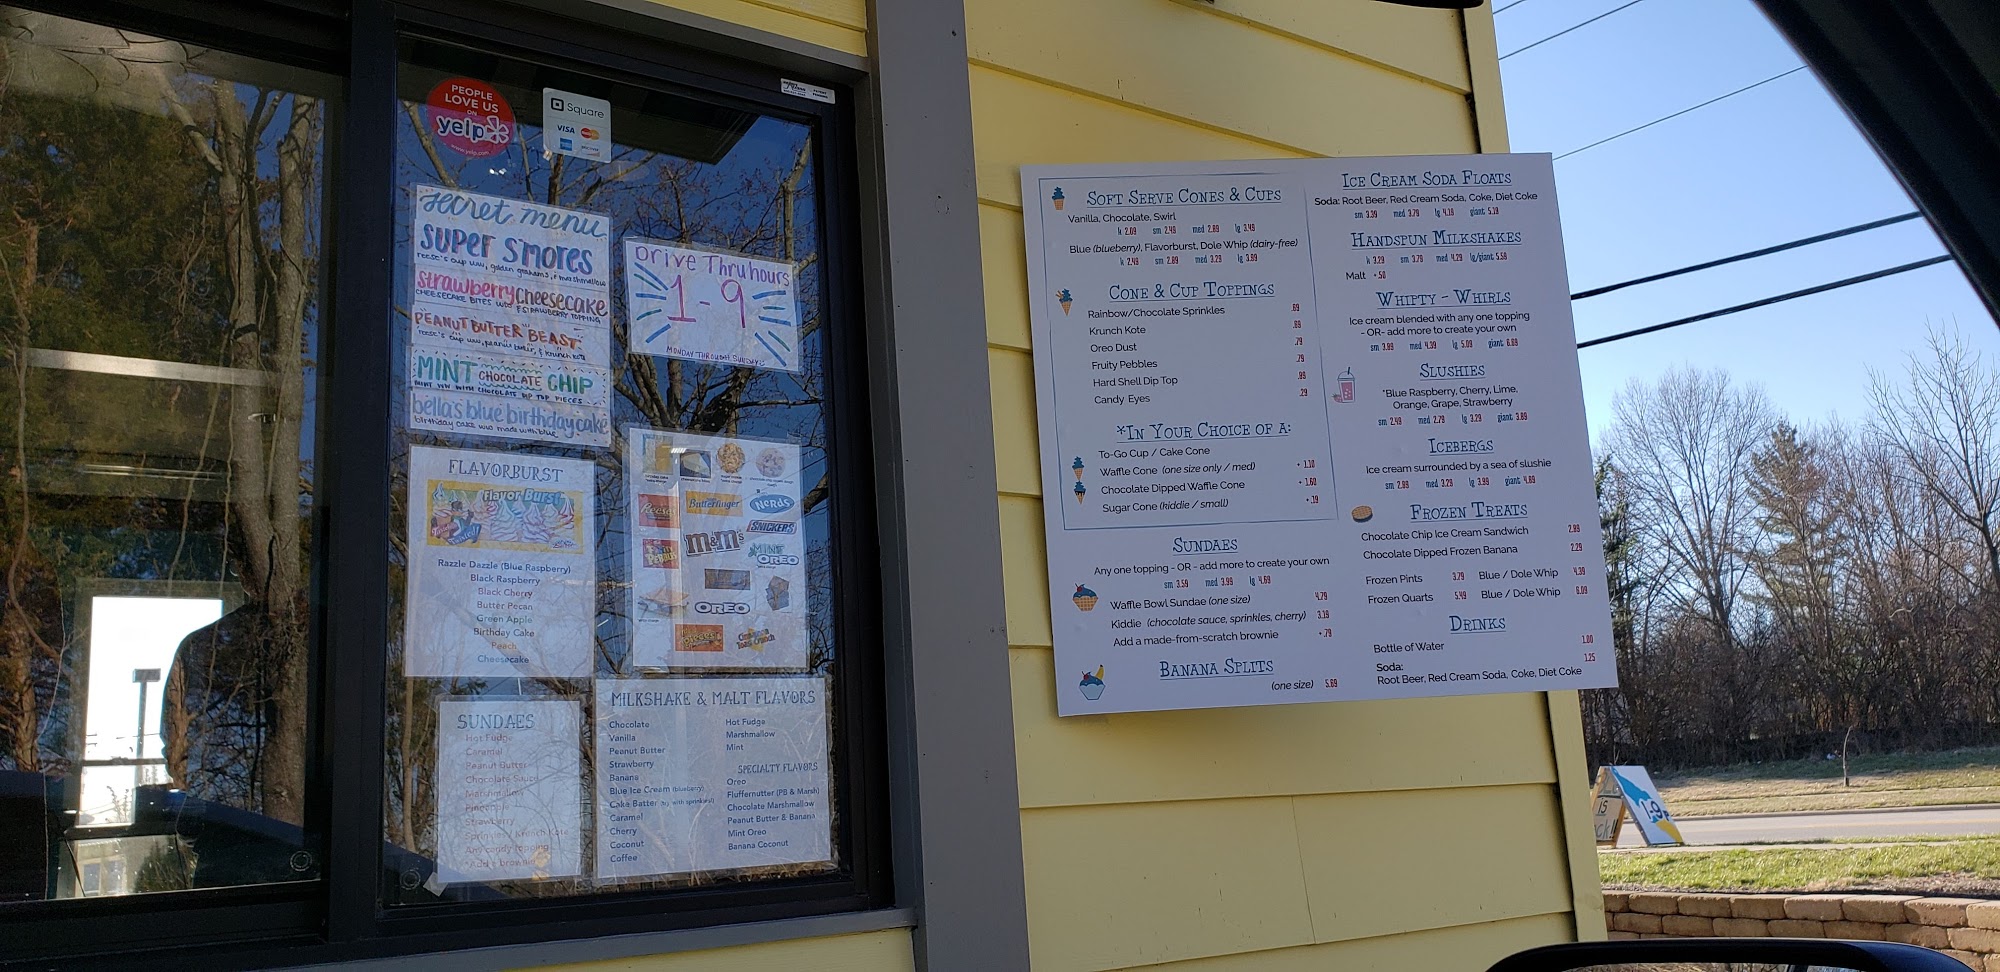 PEOPLE
LOVE US
ON
yelp
www.yelp.com
Square
VISA
secret menu
SUPER S'MORES
reese's cup ww, golden grahams, & marshmallow
Strawberry Cheesecake
CHEESECAKE BITES WW STRAWBERRY TOPPING
PEANUT BUTTER BEAST
reese's cup ww, peanut butter, & krunch kote
MINT CHOCOLATE CHIP
MINT WW WITH CHOCOLATE DIP TOP PIECES
bella's blue birthday cake
birthday cake ww made with blue
Drive Thru hours
1-9
MONDAY THROUGH SUNDAY
FLAVORBURST
Flavor Burst
Razzle Dazzle (Blue Raspberry)
Black Raspberry
Black Cherry
Butter Pecan
Green Apple
Birthday Cake
Peach
Cheesecake
Reese's
Butterfinger
NERDS
SNICKERS
M&M's
MINT
OREO
OREO
SUNDAES
Hot Fudge
Caramel
Peanut Butter
Chocolate Sauce
Marshmallow
Pineapple
Strawberry
Sprinkles / Krunch Kote
Any candy topping
*Add a brownie
MILKSHAKE & MALT FLAVORS
Chocolate
Vanilla
Peanut Butter
Strawberry
Banana
Blue Ice Cream (blueberry)
Cake Batter (try with sprinkles!)
Caramel
Cherry
Coconut
Coffee
Hot Fudge
Marshmallow
Mint
SPECIALTY FLAVORS
Oreo
Fluffernutter (PB & Marsh)
Chocolate Marshmallow
Peanut Butter & Banana
Mint Oreo
Banana Coconut
SOFT SERVE CONES & CUPS
Vanilla, Chocolate, Swirl
k 2.09 sm 2.49 med 2.89 lg 3.49
Blue (blueberry), Flavorburst, Dole Whip (dairy-free)
k 2.49 sm 2.89 med 3.29 lg 3.89
CONE & CUP TOPPINGS
Rainbow/Chocolate Sprinkles .69
Krunch Kote .89
Oreo Dust .79
Fruity Pebbles .79
Hard Shell Dip Top .99
Candy Eyes .29
*IN YOUR CHOICE OF A:
To-Go Cup / Cake Cone
Waffle Cone (one size only / med) + 1.10
Chocolate Dipped Waffle Cone + 1.60
Sugar Cone (kiddie / small) + .19
SUNDAES
Any one topping - OR - add more to create your own
sm 3.59 med 3.99 lg 4.69
Waffle Bowl Sundae (one size) 4.79
Kiddie (chocolate sauce, sprinkles, cherry) 3.19
Add a made-from-scratch brownie + .79
BANANA SPLITS
(one size) 5.69
ICE CREAM SODA FLOATS
Soda: Root Beer, Red Cream Soda, Coke, Diet Coke
sm 3.39 med 3.79 lg 4.19 giant 5.19
HANDSPUN MILKSHAKES
k 3.29 sm 3.79 med 4.29 lg/giant 5.59
Malt + .50
WHIPTY - WHIRLS
Ice cream blended with any one topping
- OR- add more to create your own
sm 3.99 med 4.39 lg 5.09 giant 6.89
SLUSHIES
*Blue Raspberry, Cherry, Lime,
Orange, Grape, Strawberry
sm 2.49 med 2.79 lg 3.29 giant 3.89
ICEBERGS
Ice cream surrounded by a sea of slushie
sm 2.89 med 3.29 lg 3.99 giant 4.89
FROZEN TREATS
Chocolate Chip Ice Cream Sandwich 2.99
Chocolate Dipped Frozen Banana 2.29
Frozen Pints 3.79 Blue / Dole Whip 4.39
Frozen Quarts 5.49 Blue / Dole Whip 6.09
DRINKS
Bottle of Water 1.00
Soda: 1.25
Root Beer, Red Cream Soda, Coke, Diet Coke
IS
1-9